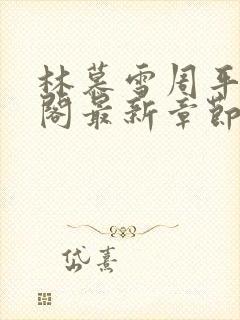 林慕雪周平
阁最新章節
岱熹